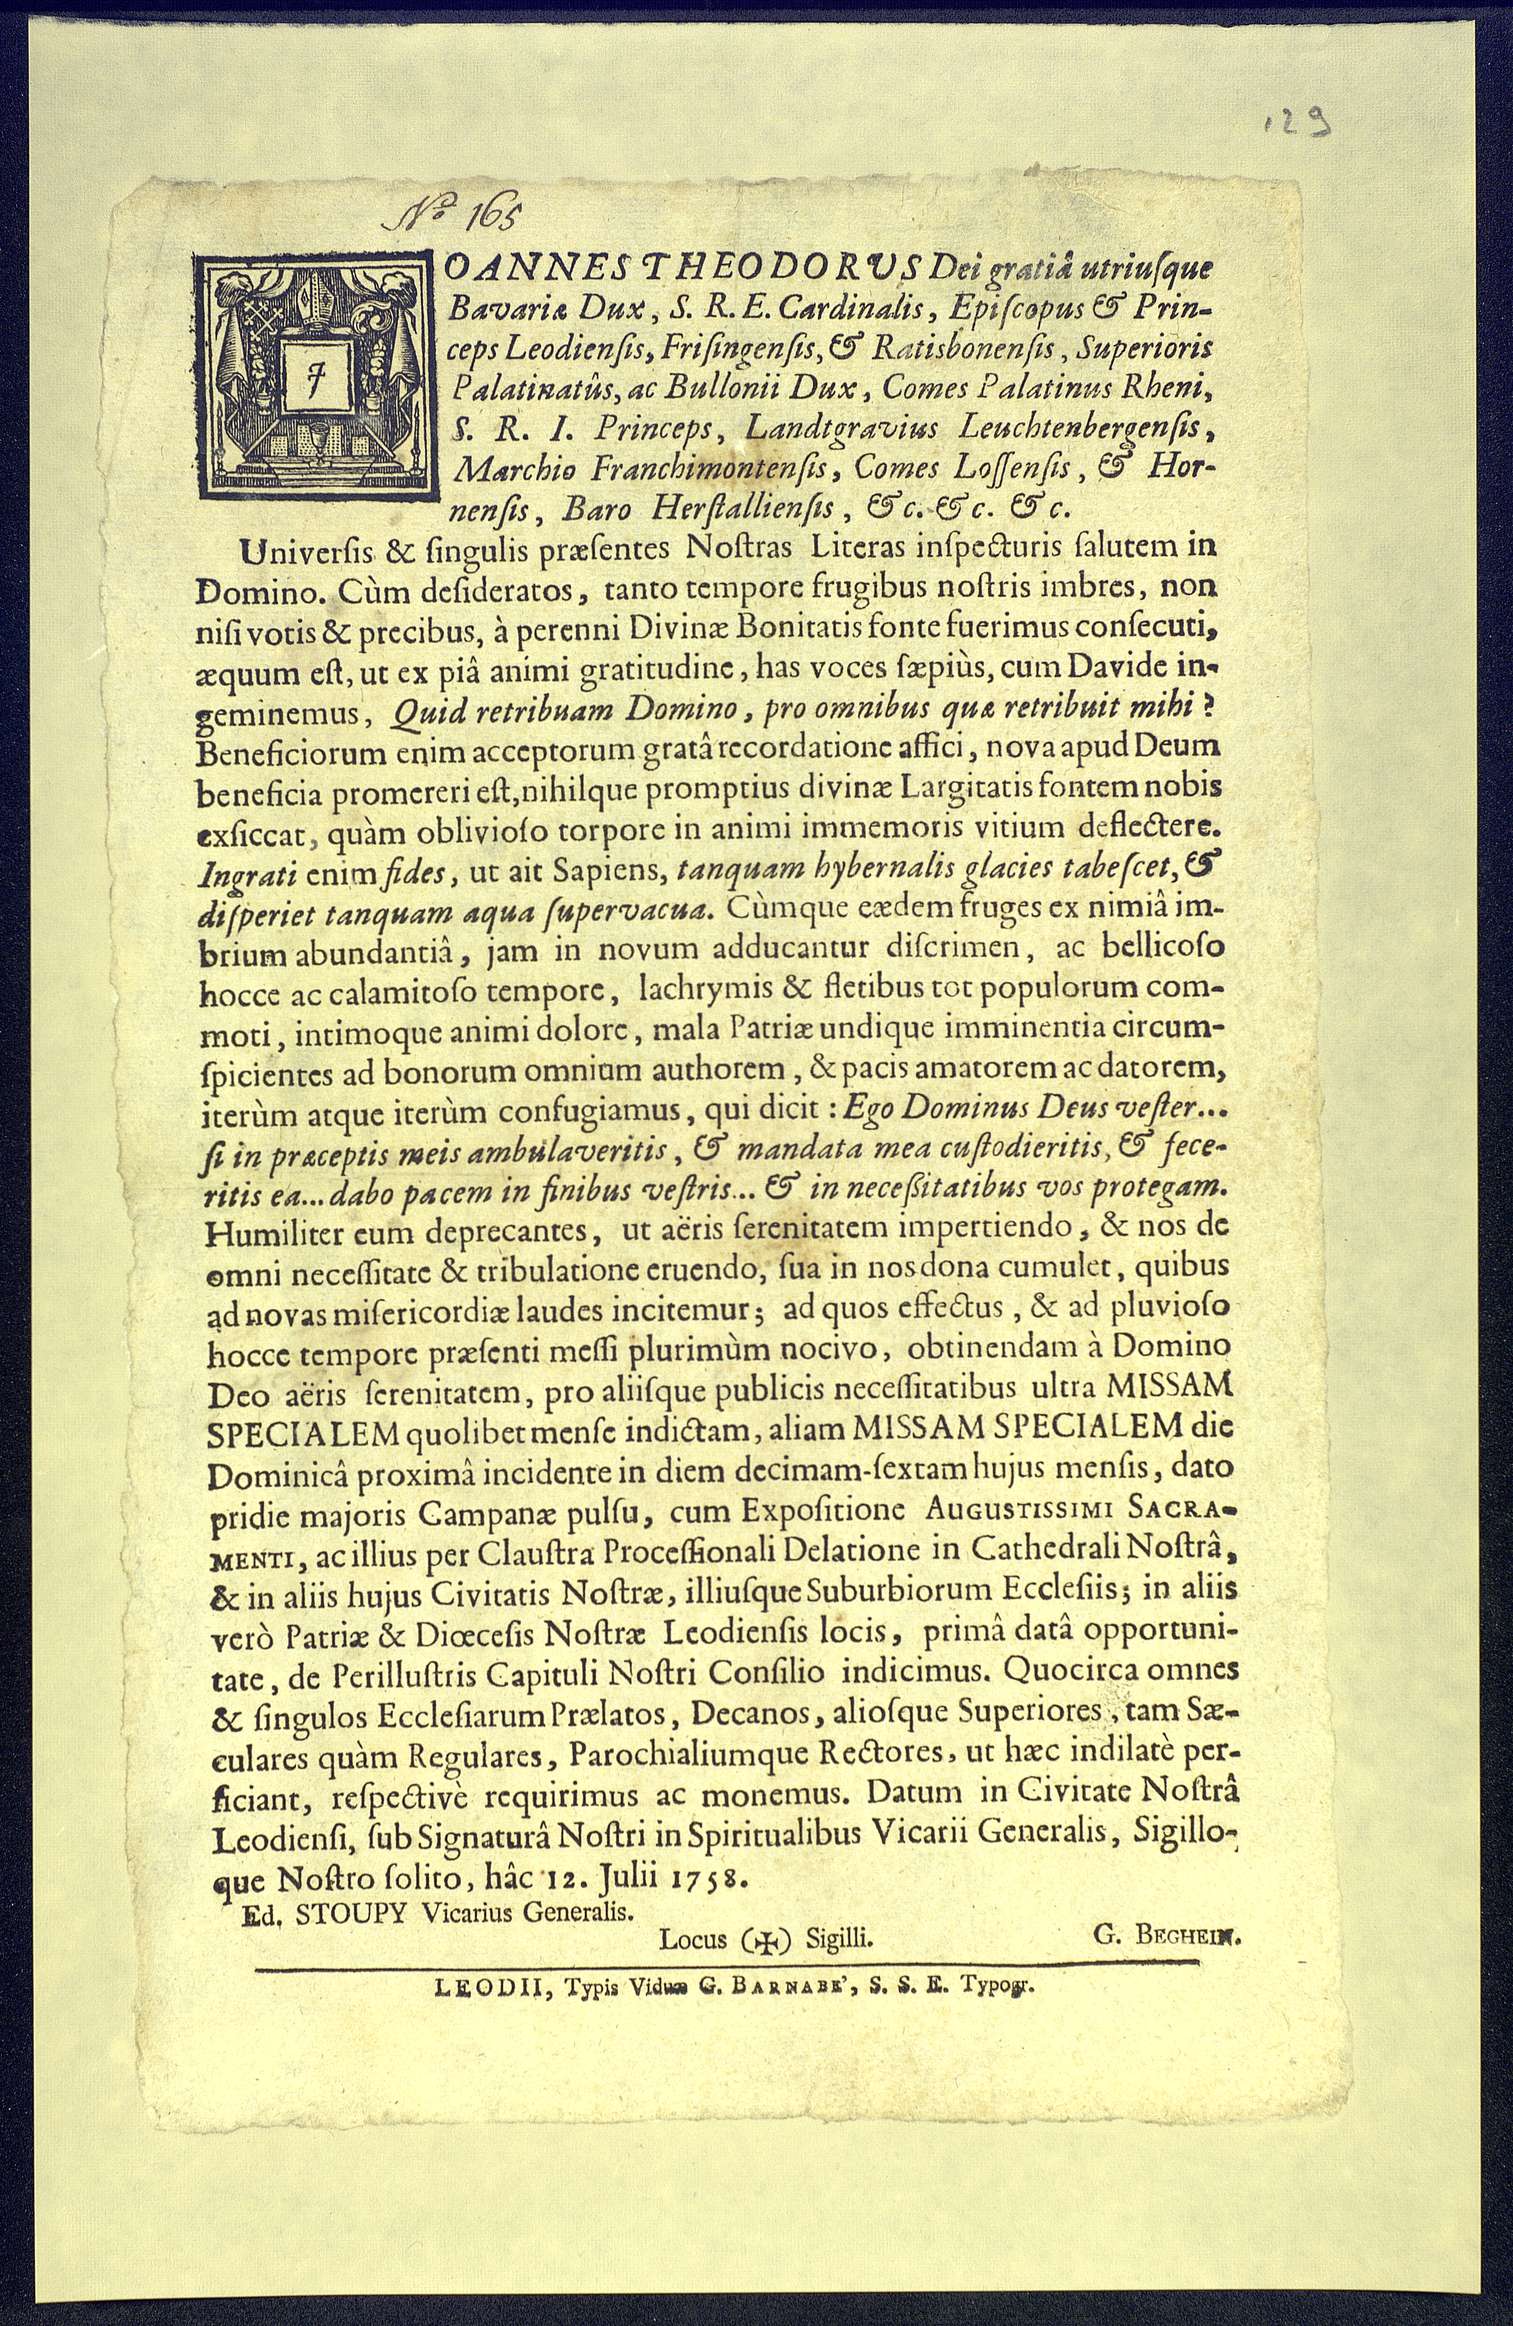 129
Nº 165
JOANNES THEODORUS Dei gratiâ utriuſque
Bavariæ Dux, S. R. E. Cardinalis, Epiſcopus & Prin-
ceps Leodienſis, Friſingenſis, & Ratisbonenſis, Superioris
Palatinatûs, ac Bullonii Dux, Comes Palatinus Rheni,
S. R. I. Princeps, Landtgravius Leuchtenbergenſis,
Marchio Franchimontenſis, Comes Loſſenſis, & Hor-
nenſis, Baro Herſtallienſis, &c. &c. &c.
Univerſis & ſingulis præſentes Noſtras Literas inſpecturis ſalutem in
Domino. Cùm deſideratos, tanto tempore frugibus noſtris imbres, non
niſi votis & precibus, à perenni Divinæ Bonitatis fonte fuerimus conſecuti,
æquum eſt, ut ex piâ animi gratitudine, has voces ſæpiùs, cum Davide in-
geminemus, Quid retribuam Domino, pro omnibus quæ retribuit mihi?
Beneficiorum enim acceptorum gratâ recordatione affici, nova apud Deum
beneficia promereri eſt, nihilque promptius divinæ Largitatis fontem nobis
exſiccat, quàm oblivioſo torpore in animi immemoris vitium deflectere.
Ingrati enim fides, ut ait Sapiens, tanquam hybernalis glacies tabeſcet, &
diſperiet tanquam aqua ſupervacua. Cùmque eædem fruges ex nimiâ im-
brium abundantiâ, jam in novum adducantur diſcrimen, ac bellicoſo
hocce ac calamitoſo tempore, lachrymis & fletibus tot populorum com-
moti, intimoque animi dolore, mala Patriæ undique imminentia circum-
ſpicientes ad bonorum omnium authorem, & pacis amatorem ac datorem,
iterùm atque iterùm confugiamus, qui dicit: Ego Dominus Deus veſter...
ſi in præceptis meis ambulaveritis, & mandata mea cuſtodieritis, & fece-
ritis ea... dabo pacem in finibus veſtris... & in neceßitatibus vos protegam.
Humiliter eum deprecantes, ut aëris ſerenitatem impertiendo, & nos de
omni neceſſitate & tribulatione eruendo, ſua in nos dona cumulet, quibus
ad novas miſericordiæ laudes incitemur; ad quos effectus, & ad pluvioſo
hocce tempore præſenti meſſi plurimùm nocivo, obtinendam à Domino
Deo aëris ſerenitatem, pro aliiſque publicis neceſſitatibus ultra MISSAM
SPECIALEM quolibet menſe indictam, aliam MISSAM SPECIALEM die
Dominicâ proximâ incidente in diem decimam-ſextam hujus menſis, dato
pridie majoris Campanæ pulſu, cum Expoſitione AUGUSTISSIMI SACRA-
MENTI, ac illius per Clauſtra Proceſſionali Delatione in Cathedrali Noſtrâ,
& in aliis hujus Civitatis Noſtræ, illiuſque Suburbiorum Eccleſiis; in aliis
verò Patriæ & Diœceſis Noſtræ Leodienſis locis, primâ datâ opportuni-
tate, de Perilluſtris Capituli Noſtri Conſilio indicimus. Quocirca omnes
& ſingulos Eccleſiarum Prælatos, Decanos, alioſque Superiores, tam Sæ-
culares quàm Regulares, Parochialiumque Rectores, ut hæc indilatè per-
ficiant, reſpectivè requirimus ac monemus. Datum in Civitate Noſtrâ
Leodienſi, ſub Signaturâ Noſtri in Spiritualibus Vicarii Generalis, Sigillo-
que Noſtro ſolito, hâc 12. Julii 1758.
Ed. STOUPY Vicarius Generalis.
Locus (✠) Sigilli. G. BEGHEIN.
LEODII, Typis Viduæ G. BARNABE', S. S. E. Typogr.